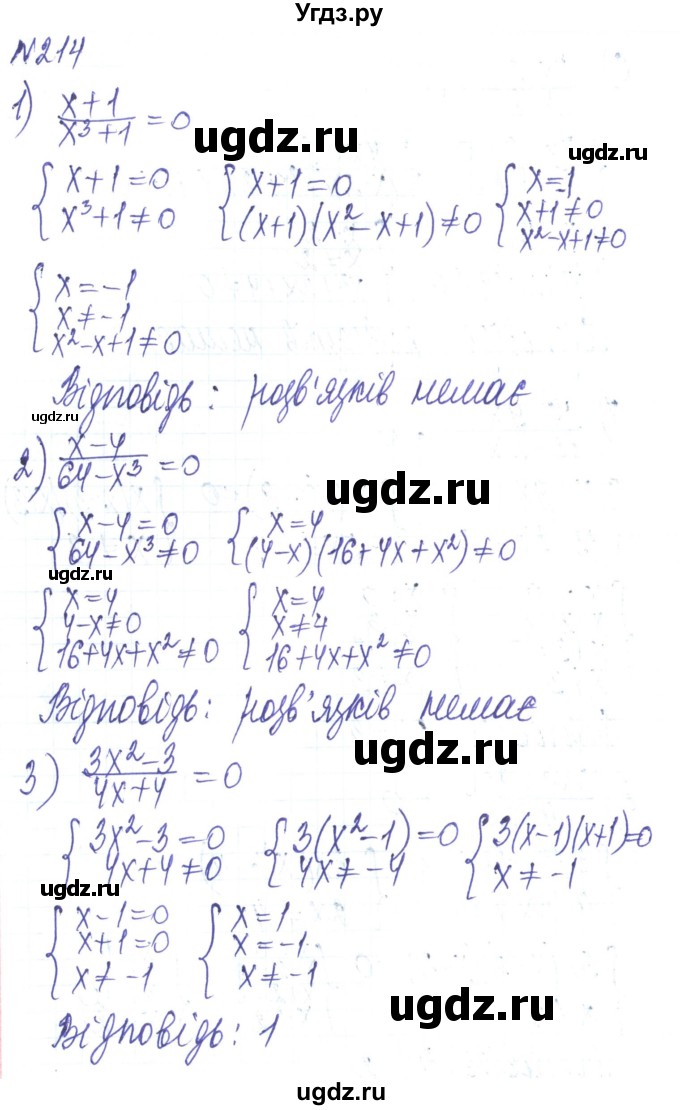 Угдз.ру
№214
1) x+1/x³+1 = 0
ugdz.ru
{ x+1=0 { x+1=0 { x=1
{ x³+1≠0 { (x+1)(x²-x+1)≠0 { x+1≠0
{ x²-x+1≠0
{ x=-1
{ x≠-1
{ x²-x+1≠0
ugdz.ru
Відповідь: розв'язків немає
ugdz.ru
2) x-4/64-x³ = 0
ugdz.ru
{ x-4=0 { x=4
{ 64-x³≠0 { (4-x)(16+4x+x²)≠0
ugdz.ru
{ x=4 { x=4
{ 4-x≠0 { x≠4
{ 16+4x+x²≠0 { 16+4x+x²≠0
Відповідь: розв'язків немає
ugdz.ru
3) 3x²-3/4x+4 = 0
{ 3x²-3=0 { 3(x²-1)=0 { 3(x-1)(x+1)=0
{ 4x+4≠0 { 4x≠-4 { x≠-1
ugdz.ru
{ x-1=0 { x=1
{ x+1=0 { x=-1
{ x≠-1 { x≠-1
ugdz.ru
Відповідь: 1
ugdz.ru